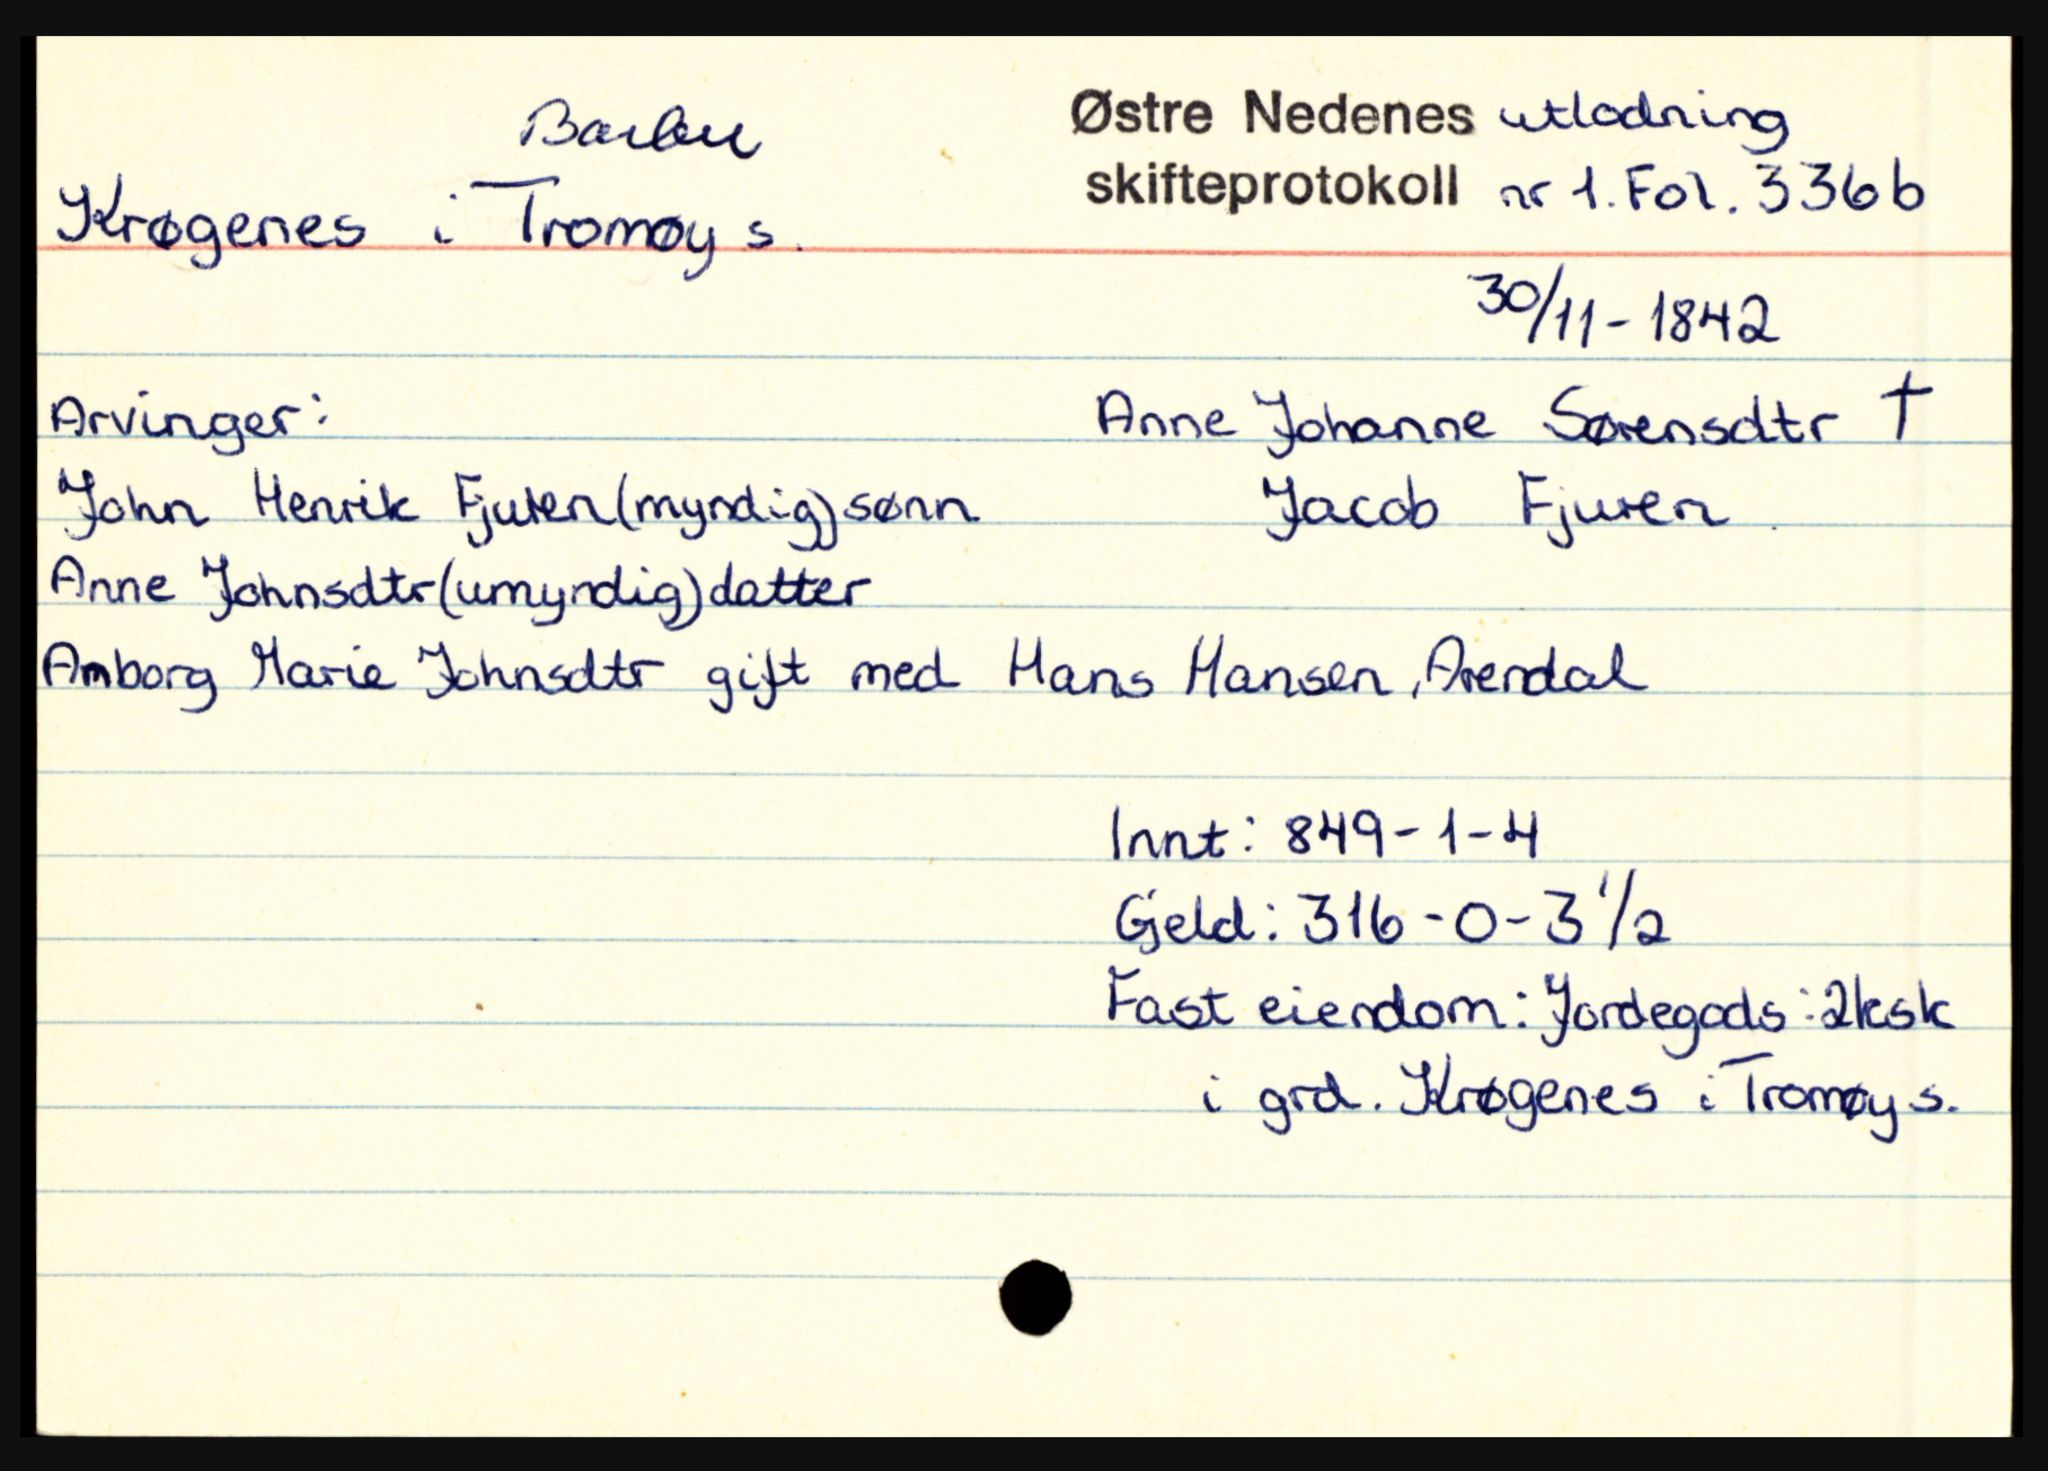 Barbu
Krøgenes i Tromøy s.
Østre Nedenes utlodning
skifteprotokoll nr 1. Fol. 336b
30/11-1842
Arvinger:
Anne Johanne Sørensdtr †
John Henrik Fjuren (myndig) sønn
Jacob Fjuren
Anne Johnsdtr (umyndig) datter
Amborg Marie Johnsdtr gift med Hans Hansen, Arendal
Innt: 849-1-4
Gjeld: 316-0-3 1/2
Fast eiendom: Jordegods: 2ksk
i grd. Krøgenes i Tromøy s.